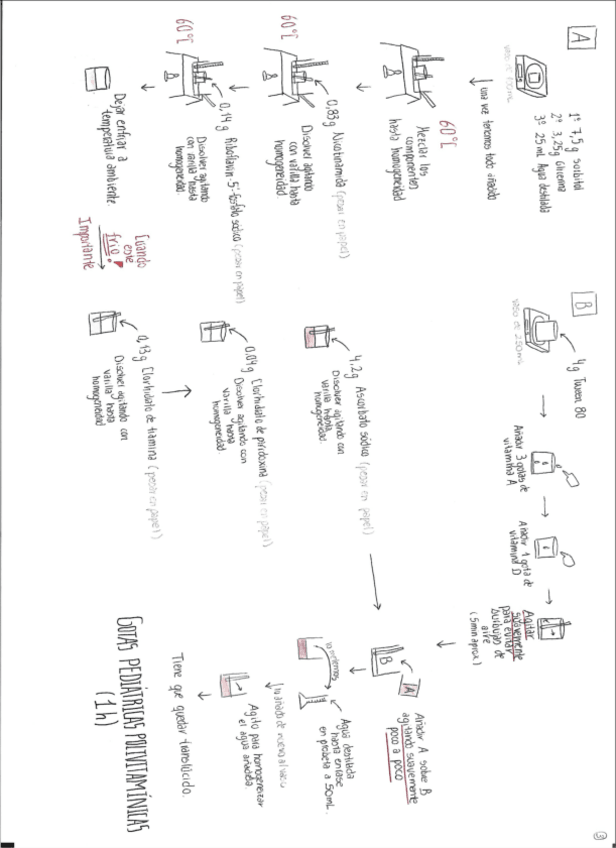 A
1º 7,5g Sorbitol
2º 3,25g Glicerina
3º 25 mL Agua destilada
una vez tenemos todo añadido
60ºC
Mezclar los
componentes
hasta homogeneidad
60ºC
0,83g Nicotinamida (pesar en papel)
Disolver agitando
con varilla hasta
homogeneidad.
60ºC
0,14g Riboflavin-5'-fosfato sódico (pesar en papel)
Disolver agitando
con varilla hasta
homogeneidad.
Dejar enfriar a
temperatura ambiente.
Cuando
esté
frío!
Importante
0,13g Clorhidrato de tiamina (pesar en papel)
Disolver agitando con
varilla hasta
homogeneidad
0,04g Clorhidrato de piridoxina (pesar en papel)
Disolver agitando con
varilla hasta
homogeneidad.
4,2g Ascorbato sódico (pesar en papel)
Disolver agitando con
varilla hasta
homogeneidad.
B
vaso de 250mL
4g Tween 80
Añadir 3 gotas de
vitamina A
Añadir 1 gota de
vitamina D
Agitar
suavemente
para evitar
burbujas de
aire
(5min aprox)
A
B
Añadir A sobre B
agitando suavemente
poco a poco
Agua destilada
hasta enrase
en probeta a 50mL.
lo añado de nuevo al vaso
Agito para homogeneizar
el agua añadida.
Tiene que quedar translúcido.
GOTAS PEDIÁTRICAS POLIVITAMÍNICAS
(1h)
3